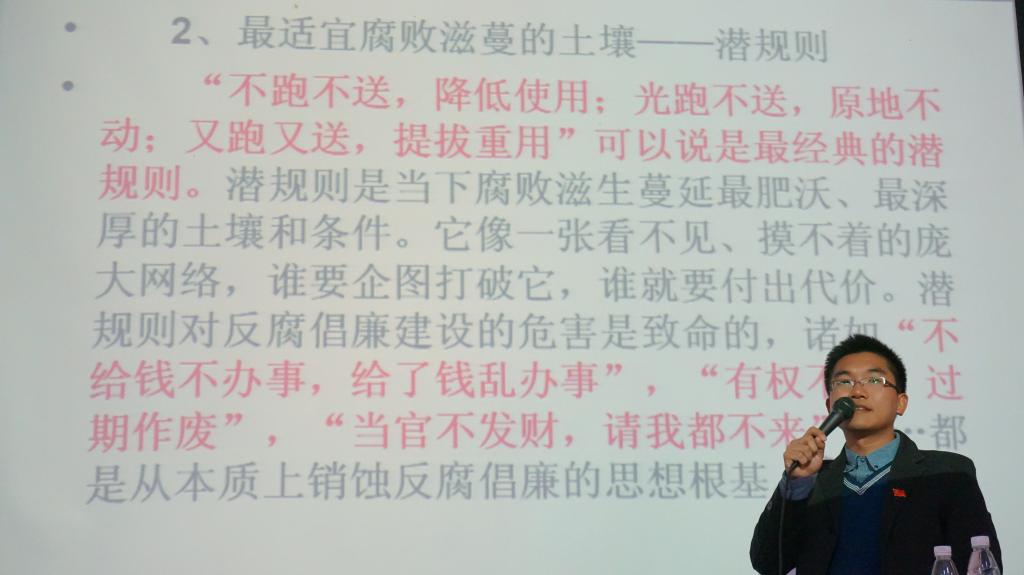 • 2、最适宜腐败滋蔓的土壤——潜规则
• “不跑不送，降低使用；光跑不送，原地不
动；又跑又送，提拔重用”可以说是最经典的潜
规则。潜规则是当下腐败滋生蔓延最肥沃、最深
厚的土壤和条件。它像一张看不见、摸不着的庞
大网络，谁要企图打破它，谁就要付出代价。潜
规则对反腐倡廉建设的危害是致命的，诸如“不
给钱不办事，给了钱乱办事”，“有权不 过
期作废”，“当官不发财，请我都不来 …都
是从本质上销蚀反腐倡廉的思想根基